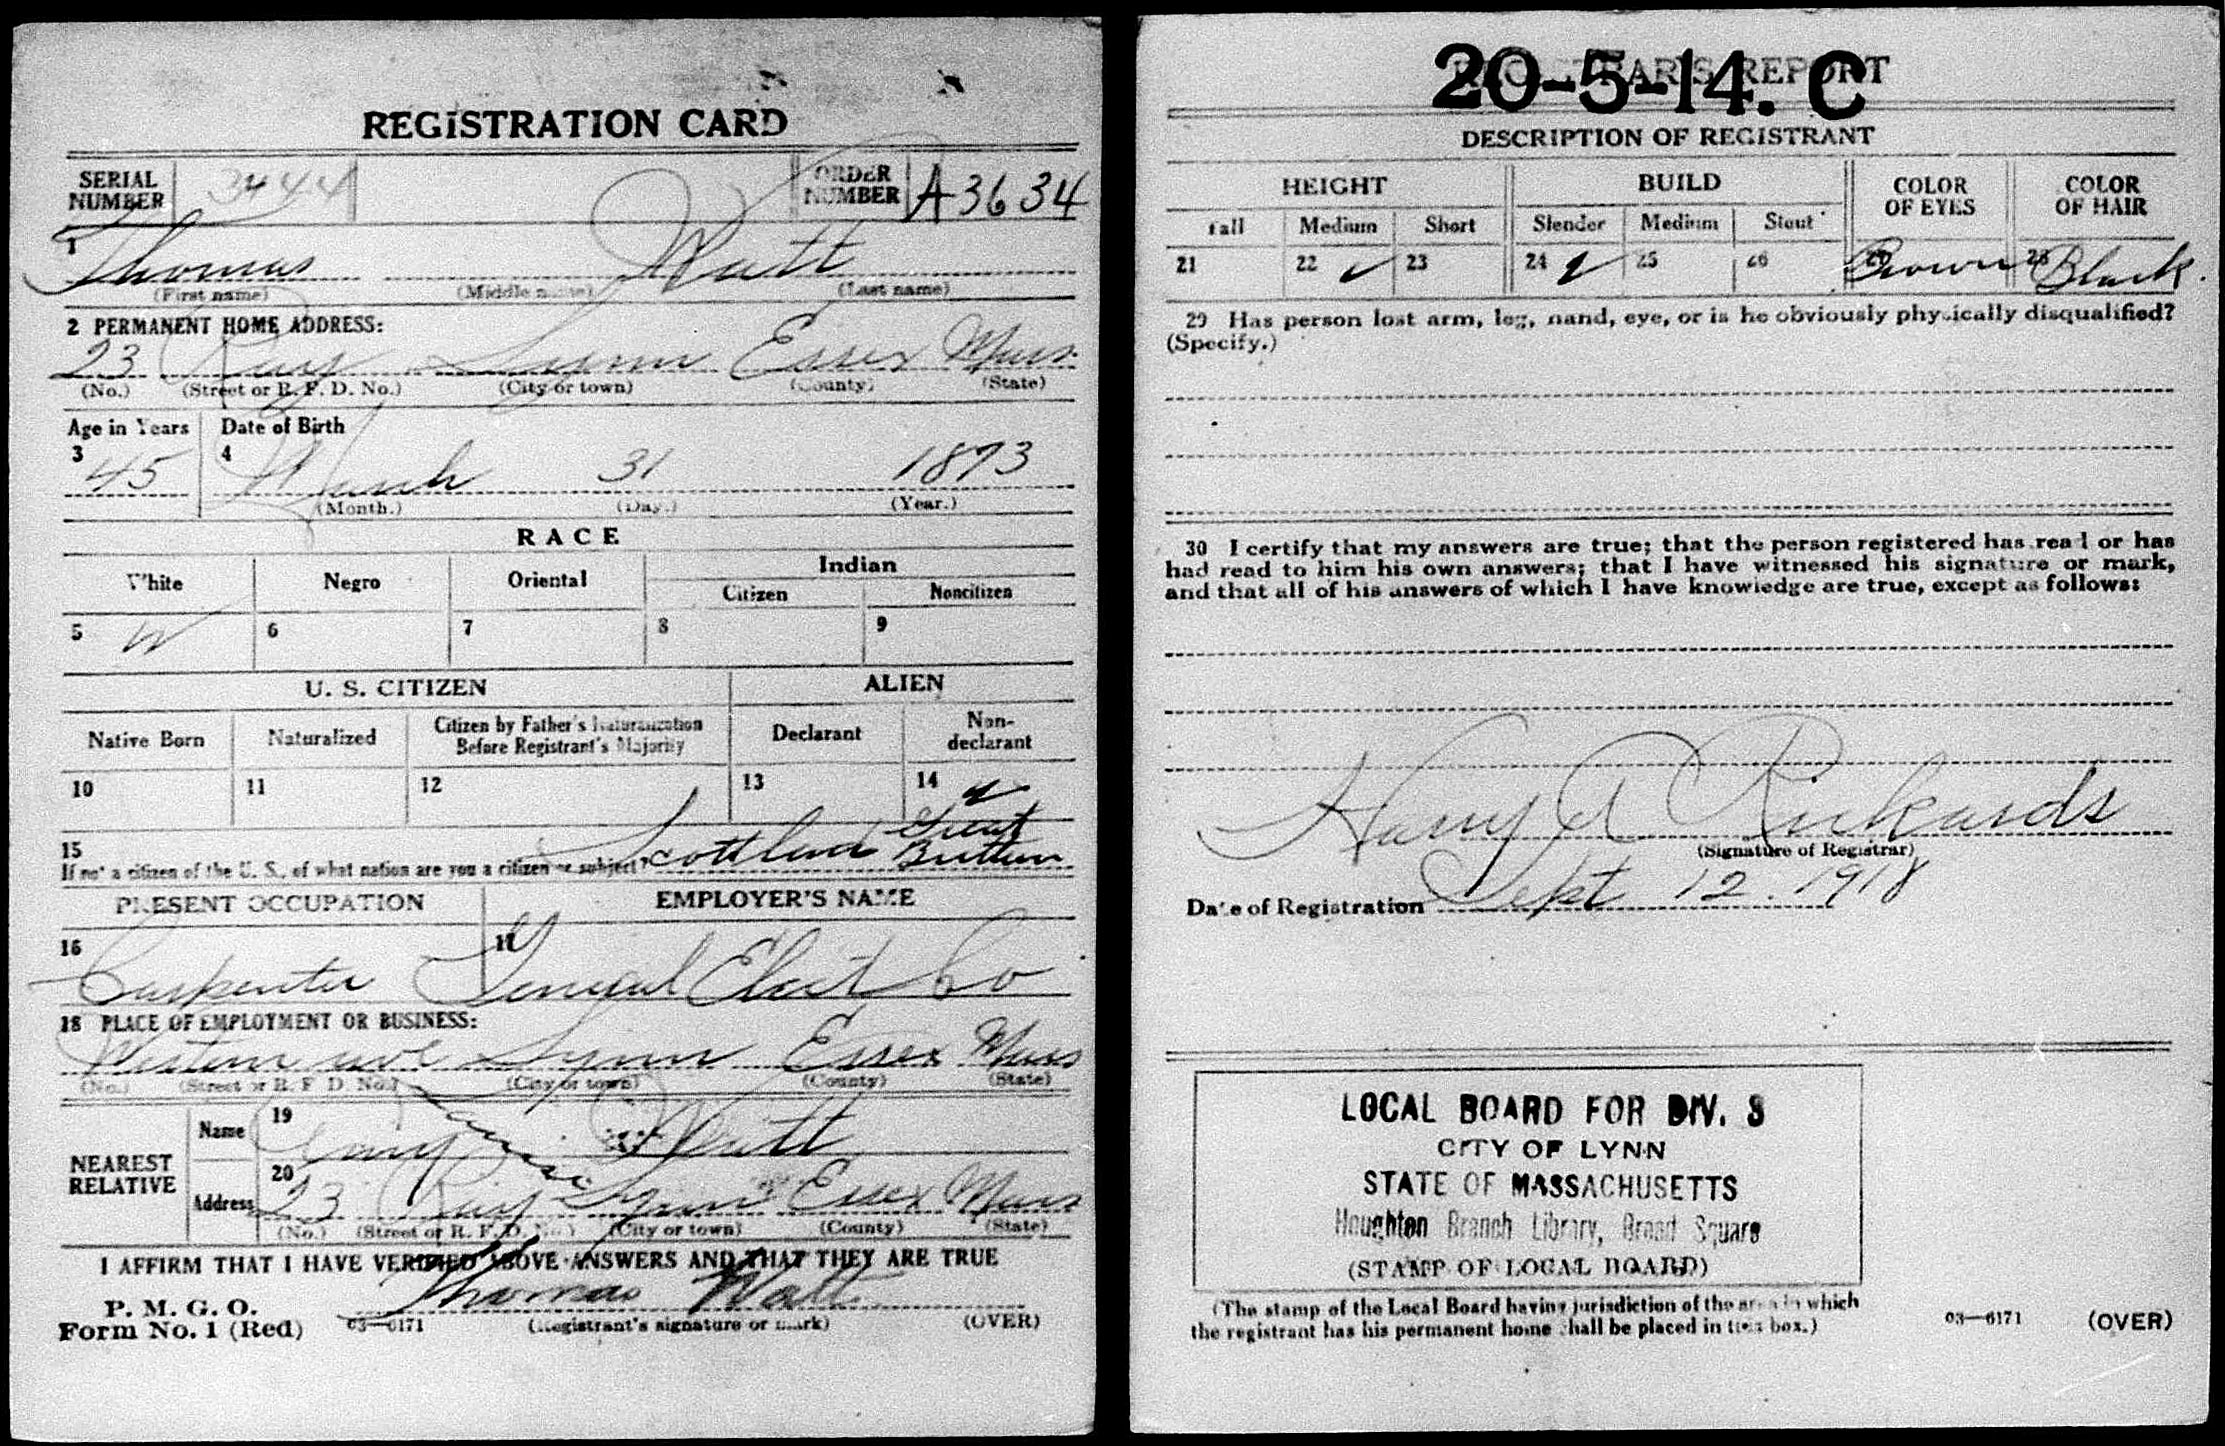 REGISTRATION CARD
SERIAL NUMBER 3444 ORDER NUMBER A3634
1 Thomas Watt
(First name) (Middle name) (Last name)
2 PERMANENT HOME ADDRESS:
23 Lynn Essex Mass
(No.) (Street or R. F. D. No.) (City or town) (County) (State)
Age in Years Date of Birth
3 45 4 March 31 1873
(Month.) (Day.) (Year.)
RACE
White Negro Oriental Indian
Citizen Noncitizen
5 W 6 7 8 9
U. S. CITIZEN ALIEN
Native Born Naturalized Citizen by Father's Naturalization Before Registrant's Majority Declarant Non-declarant
10 11 12 13 14 ✓
15 If not a citizen of the U. S., of what nation are you a citizen or subject? Scottland Great Brittian
PRESENT OCCUPATION EMPLOYER'S NAME
16 Carpenter 17 General Elect Co
18 PLACE OF EMPLOYMENT OR BUSINESS:
Western ave Lynn Essex Mass
(No.) (Street or R. F. D. No.) (City or town) (County) (State)
NEAREST RELATIVE
Name 19 Watt
Address 20 23 Lynn Essex Mass
(No.) (Street or R. F. D. No.) (City or town) (County) (State)
I AFFIRM THAT I HAVE VERIFIED ABOVE ANSWERS AND THAT THEY ARE TRUE
Thomas Watt
P. M. G. O.
Form No. 1 (Red) 03—6171 (Registrant's signature or mark) (OVER)
REGISTRAR'S REPORT
20-5-14. C
DESCRIPTION OF REGISTRANT
HEIGHT BUILD COLOR OF EYES COLOR OF HAIR
Tall Medium Short Slender Medium Stout
21 22 ✓ 23 24 ✓ 25 26 27 Brown 28 Black
29 Has person lost arm, leg, hand, eye, or is he obviously physically disqualified?
(Specify.)
30 I certify that my answers are true; that the person registered has read or has
had read to him his own answers; that I have witnessed his signature or mark,
and that all of his answers of which I have knowledge are true, except as follows:
Harry A Rickards
(Signature of Registrar)
Date of Registration Sept 12. 1918
LOCAL BOARD FOR DIV. 3
CITY OF LYNN
STATE OF MASSACHUSETTS
Houghton Branch Library, Broad Square
(STAMP OF LOCAL BOARD)
(The stamp of the Local Board having jurisdiction of the area in which
the registrant has his permanent home shall be placed in this box.)
03—6171 (OVER)